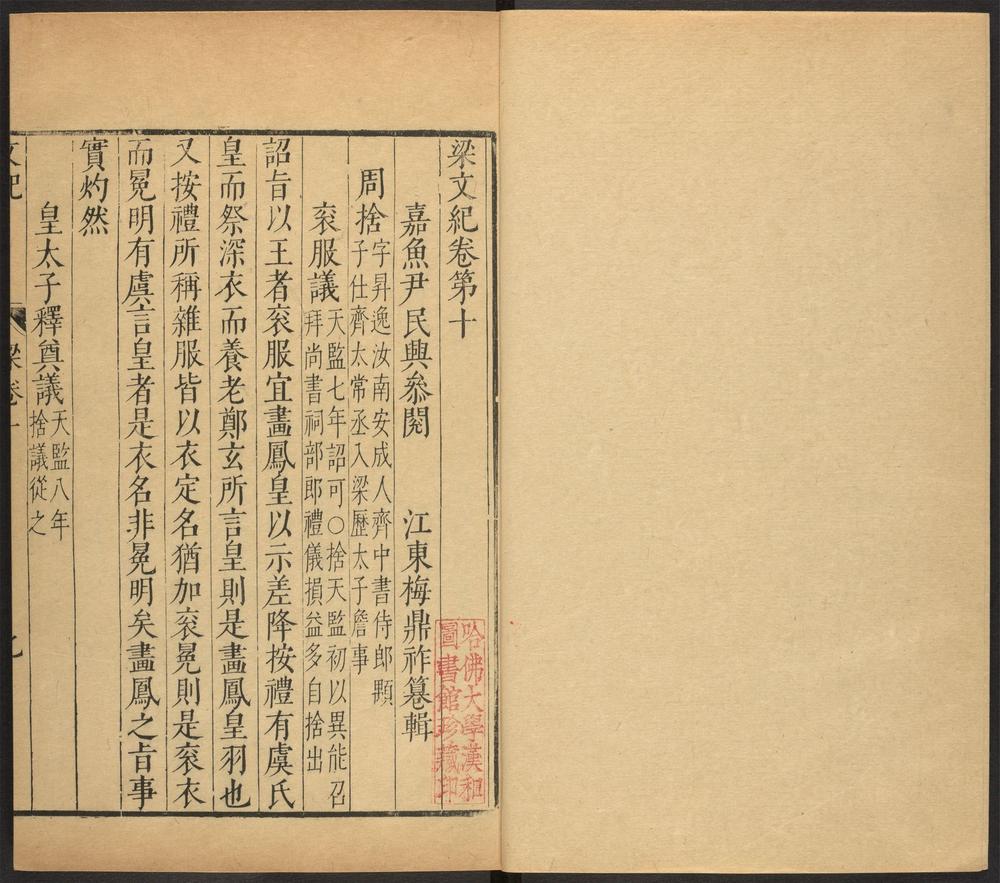 梁文紀卷第十
嘉魚尹民興叅閱　江東梅鼎祚纂輯
周捨字昇逸汝南安成人齊中書侍郎顒
子仕齊太常丞入梁歷太子詹事
衮服議天監七年詔可○捨天監初以異能召
拜尚書祠部郎禮儀損益多自捨出
詔旨以王者衮服宜畫鳳皇以示差降按禮有虞氏
皇而祭深衣而養老鄭玄所言皇則是畫鳳皇羽也
又按禮所稱雜服皆以衣定名猶加衮冕則是衮衣
而冕明有虞言皇者是衣名非冕明矣畫鳳之旨事
實灼然
皇太子釋奠議天監八年
捨議從之
文紀
梁卷十
哈佛大學漢和
圖書館珍藏印